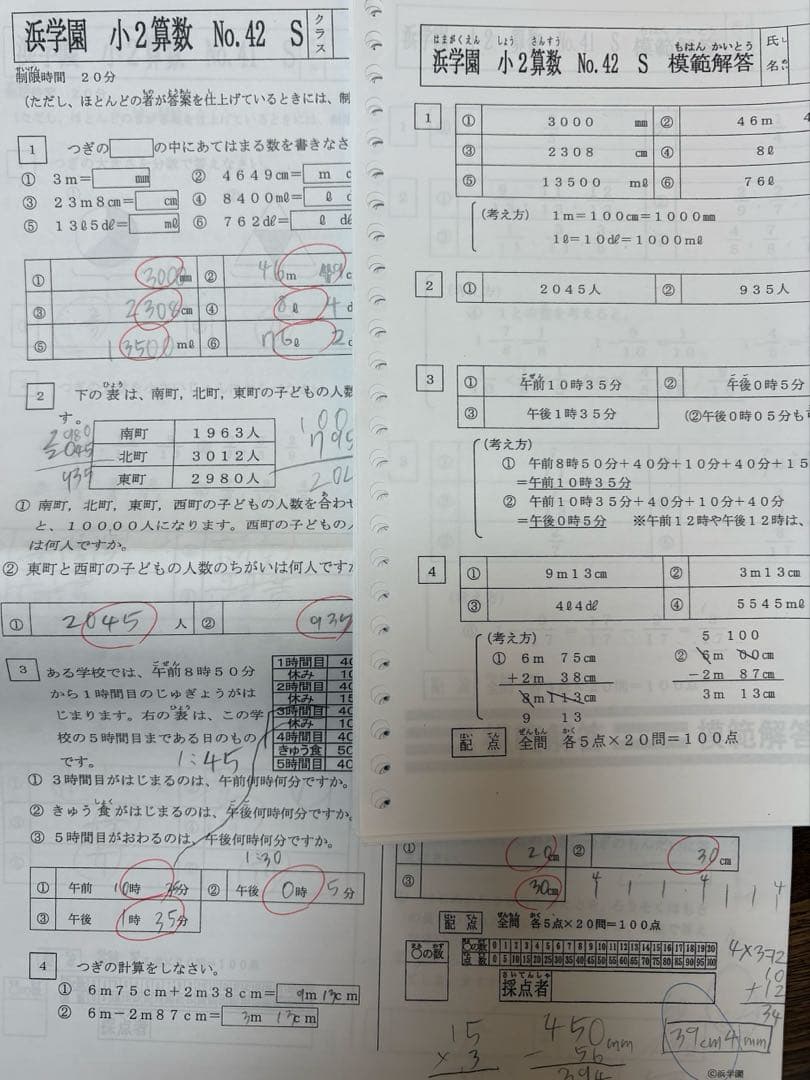 浜学園 小2算数 No.42 S
クラス
制限時間 20分
(ただし、ほとんどの者が答案を仕上げているときには、制
1 つぎの の中にあてはまる数を書きなさ
① 3m= mm ② 4649cm= m c
③ 23m8cm= cm ④ 8400mℓ= ℓ d
⑤ 13ℓ5dℓ= mℓ ⑥ 762dℓ= ℓ dℓ
① 3000mm ② 46m 49c
③ 2308cm ④ 8ℓ 4d
⑤ 13500mℓ ⑥ 76ℓ 2d
2 下の表は、南町,北町,東町の子どもの人数
す。
南町 1963人
北町 3012人
東町 2980人
2980
2045
935
① 南町,北町,東町,西町の子どもの人数を合わせ
と、10000人になります。西町の子どもの人
は何人ですか。
② 東町と西町の子どもの人数のちがいは何人ですか
① 2045 人 ② 935
3 ある学校では、午前8時50分
から1時間目のじゅぎょうがは
じまります。右の表は、この学
校の5時間目まである日のもの
です。
1:45
1時間目 40
休み 10
2時間目 40
休み 15
3時間目 40
休み 10
4時間目 40
きゅう食 50
5時間目 40
① 3時間目がはじまるのは、午前何時何分ですか。
② きゅう食がはじまるのは、午後何時何分ですか。
③ 5時間目がおわるのは、午後何時何分ですか。
1:30
① 午前 10時 35分 ② 午後 0時 5分
③ 午後 1時 35分
4 つぎの計算をしなさい。
① 6m75cm+2m38cm= 9m 13cm
② 6m-2m87cm= 3m 13cm
浜学園 小2算数 No.42 S 模範解答
氏名
1 ① 3000 mm ② 46m 4
③ 2308 cm ④ 8ℓ
⑤ 13500 mℓ ⑥ 76ℓ
(考え方) 1m=100cm=1000mm
1ℓ=10dℓ=1000mℓ
2 ① 2045人 ② 935人
3 ① 午前10時35分 ② 午後0時5分
③ 午後1時35分 (②午後0時05分も
(考え方)
① 午前8時50分+40分+10分+40分+15
=午前10時35分
② 午前10時35分+40分+10分+40分
=午後0時5分 ※午前12時や午後12時は、
4 ① 9m13cm ② 3m13cm
③ 4ℓ4dℓ ④ 5545mℓ
(考え方)
① 6m 75cm
+2m 38cm
8m113cm
9 13
5 100
② 6m 00cm
-2m 87cm
3m 13cm
配点 全問 各5点×20問=100点
① 20cm ② 30cm
③ 30cm
配点 全問 各5点×20問=100点
○の数
○の数 0 1 2 3 4 5 6 7 8 9 10 11 12 13 14 15 16 17 18 19 20
点数 0 5 10 15 20 25 30 35 40 45 50 55 60 65 70 75 80 85 90 95 100
採点者
15
×3
450mm
- 56
394
39cm4mm
©浜学園